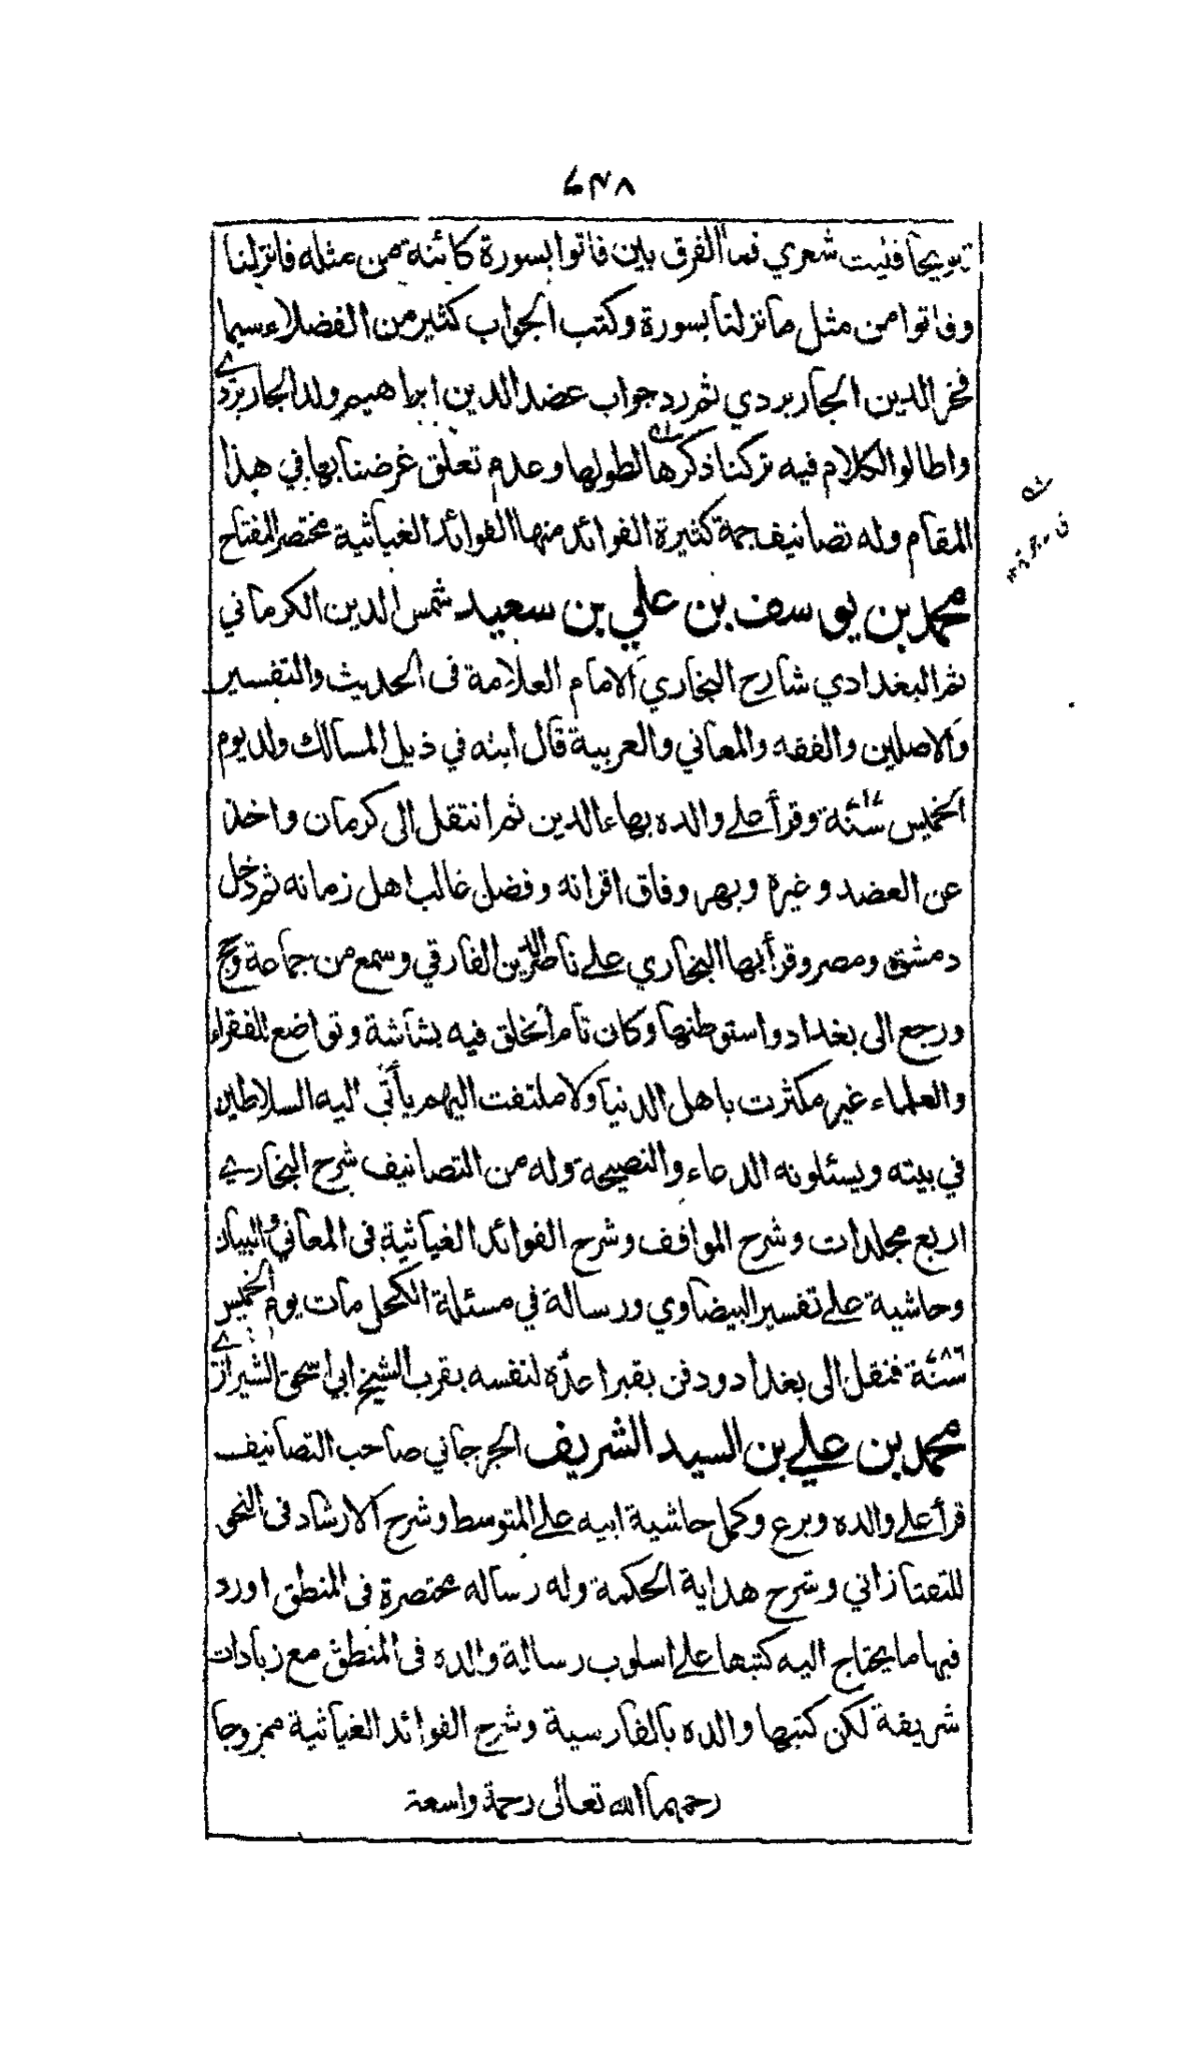 ٦٣٨
ترويجا فليت شعري فما الفرق بين فاتوا بسورة كائنة من مثله فانزلنا
وفاتوا من مثل ما نزلنا بسورة وكتب الجواب كثير من الفضلاء سيما
فخر الدين الجاربردي ثم رد جواب عضد الدين ابراهيم ولد الجاربردي
واطالوا الكلام فيه تركنا ذكرها لطولها وعدم تعلق غرضنا بها في هذا
المقام وله تصانيف جمة كثيرة الفوائد منها الفوائد الغياثية مختصر المفتاح
محمد بن يوسف بن علي بن سعيد شمس الدين الكرماني
ثم البغدادي شارح البخاري الامام العلامة فى الحديث والتفسير
والاصلين والفقه والمعاني والعربية قال ابنه في ذيل المسالك ولد يوم
الخميس سنة ٧١٧ وقرأ على والده بهاء الدين ثم انتقل الى كرمان واخذ
عن العضد وغيره وبهر وفاق اقرانه وفضل غالب اهل زمانه ثم دخل
دمشق ومصر وقرأ بها البخاري على ناصر الدين الفارقي وسمع من جماعة وحج
ورجع الى بغداد واستوطنها وكان تام الخلق فيه بشاشة وتواضع للفقراء
والعلماء غير مكترث باهل الدنيا ولا ملتفت اليهم يأتي اليه السلاطين
في بيته ويسئلونه الدعاء والنصيحة وله من التصانيف شرح البخاري
اربع مجلدات وشرح المواقف وشرح الفوائد الغياثية فى المعاني والبيان
وحاشية على تفسير البيضاوي ورسالة في مسئلة الكحل مات يوم الخميس
سنة ٧٨٦ فنقل الى بغداد ودفن بقبر اعدّه لنفسه بقرب الشيخ ابي اسحق الشيرازي
محمد بن علي بن السيد الشريف الجرجاني صاحب التصانيف
قرأ على والده وبرع وكمل حاشية ابيه على المتوسط وشرح الارشاد فى النحو
للتفتازاني وشرح هداية الحكمة وله رساله مختصرة فى المنطق اورد
فيها ما يحتاج اليه كتبها على اسلوب رسالة والده فى المنطق مع زيادات
شريفة لكن كتبها والده بالفارسية وشرح الفوائد الغياثية ممزوجا
رحمهما الله تعالى رحمة واسعة